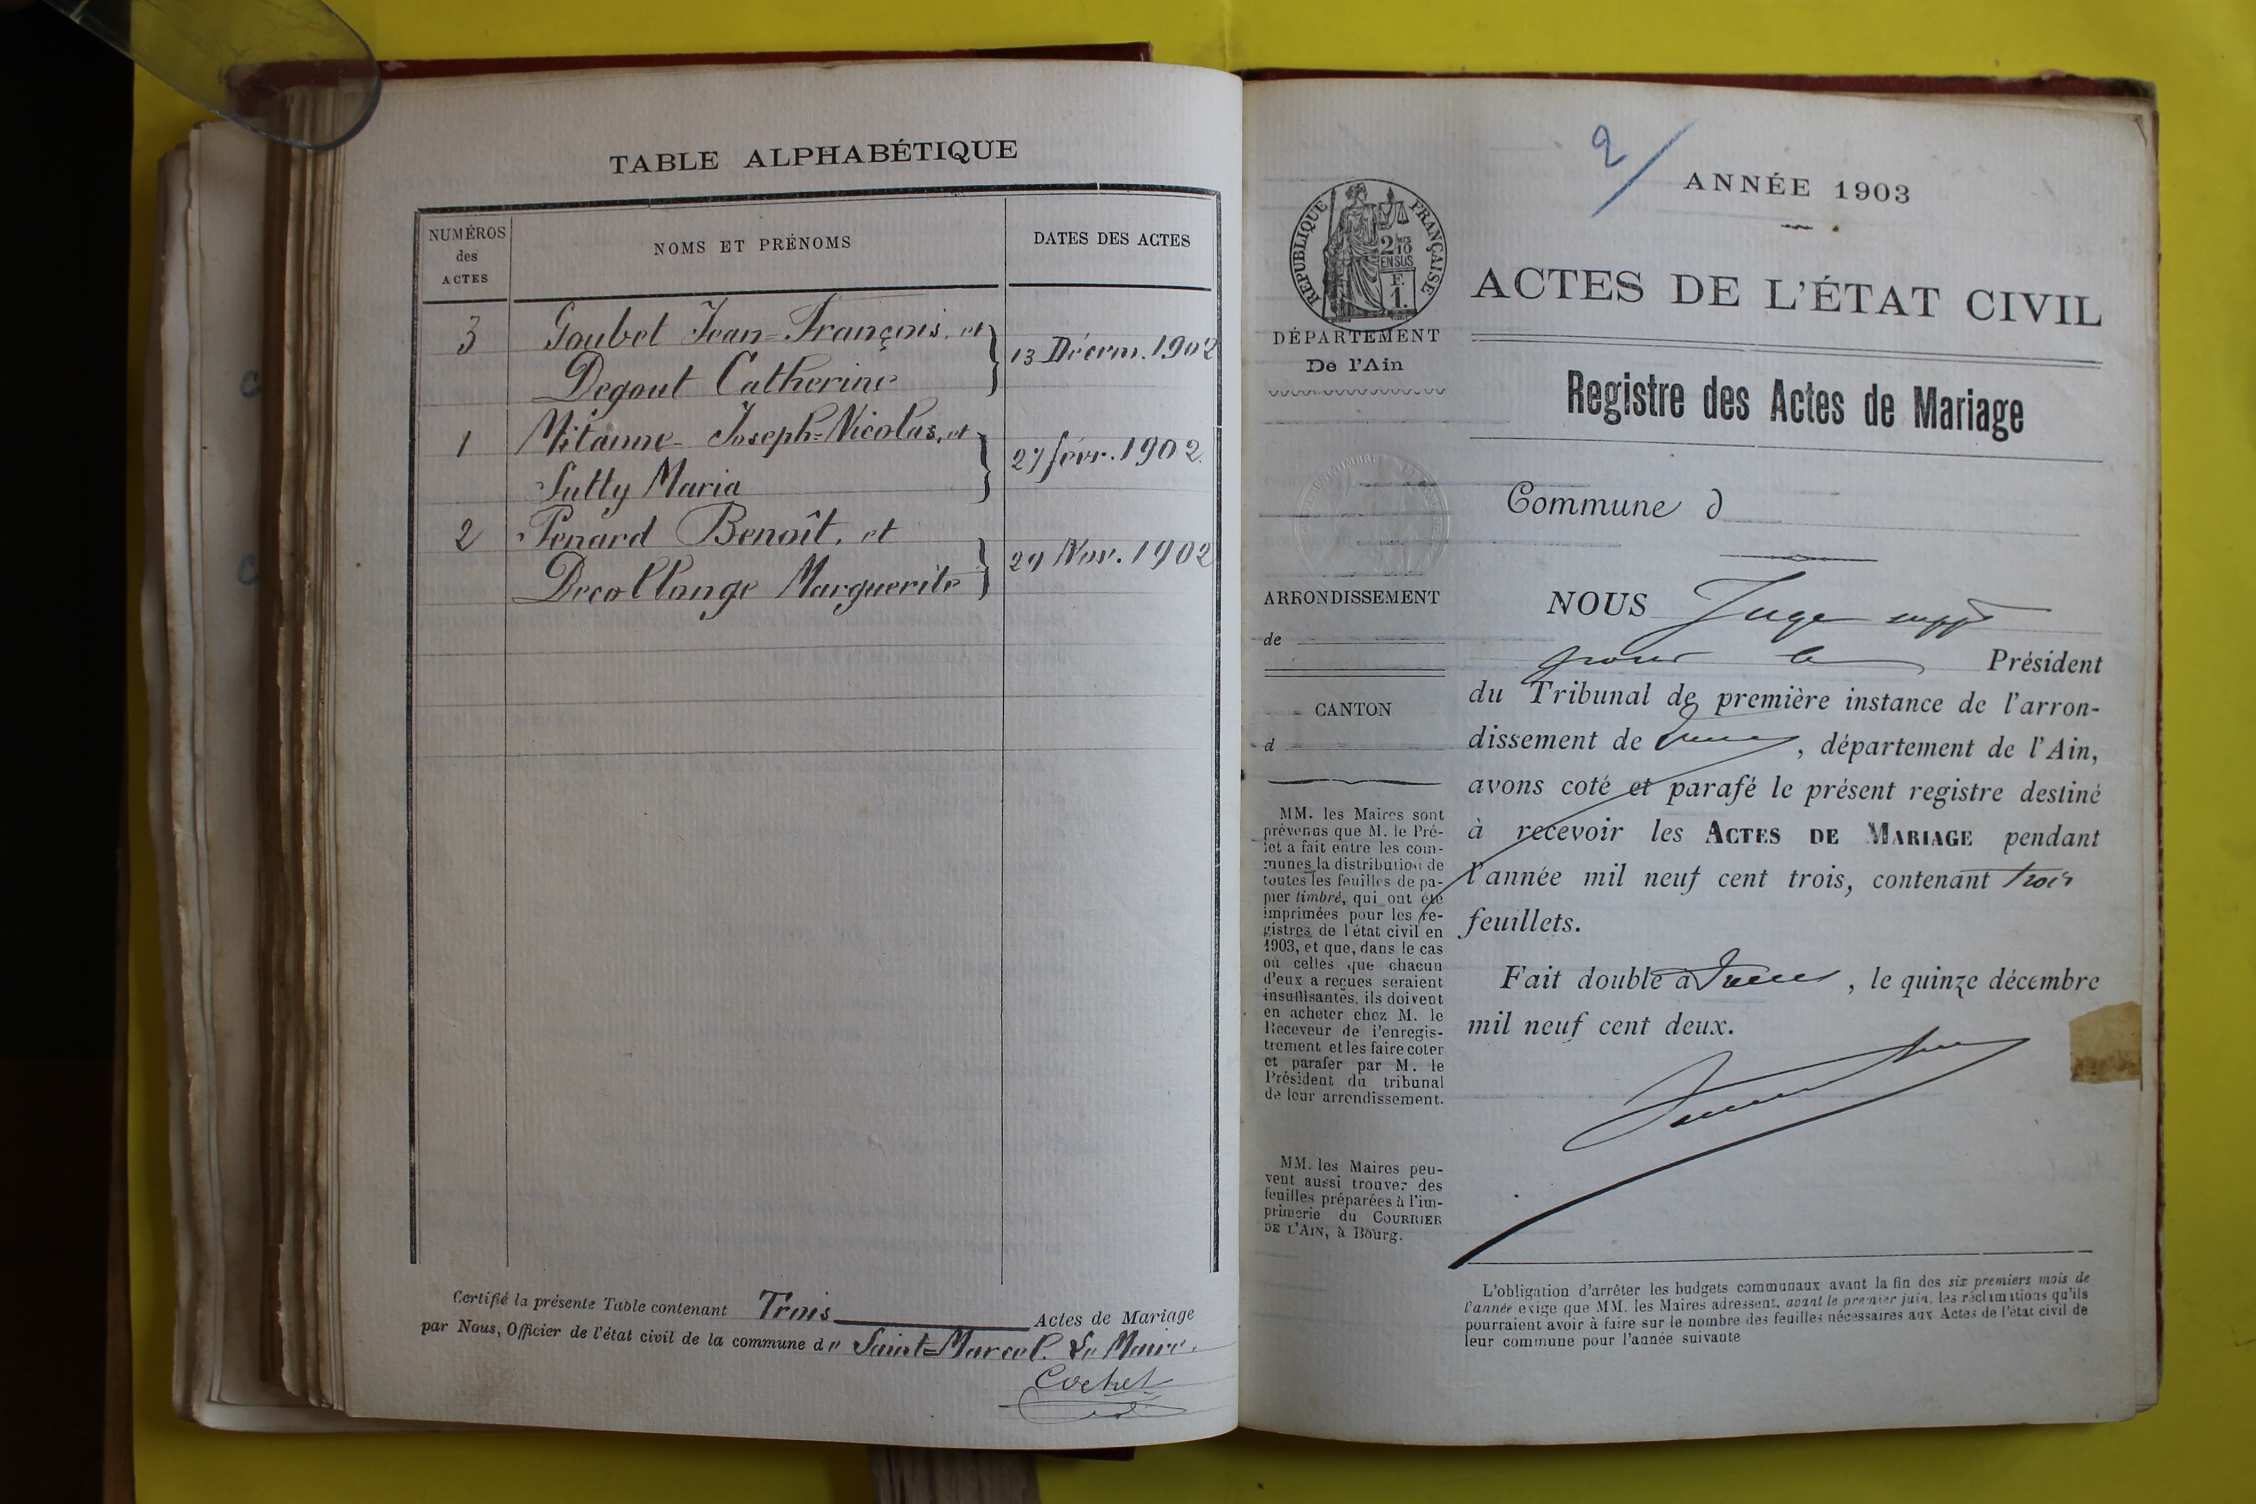 TABLE ALPHABÉTIQUE
NUMÉROS
des
ACTES
NOMS ET PRÉNOMS
DATES DES ACTES
3 Goubet Jean-François, et
Degout Catherine
13 Décem. 1902
1 Mitanne Joseph-Nicolas, et
Sutty Maria
27 févr. 1902.
2 Penard Benoît, et
Decollonge Marguerite
29 Nov. 1902
Certifié la présente Table contenant Trois Actes de Mariage
par Nous, Officier de l'état civil de la commune de Saint-Marcel. Le Maire.
Cochet
2
ANNÉE 1903
RÉPUBLIQUE FRANÇAISE
2/10
EN SUS
F.
1.
ACTES DE L'ÉTAT CIVIL
DÉPARTEMENT
De l'Ain
Registre des Actes de Mariage
Commune d
ARRONDISSEMENT
de
CANTON
d
NOUS Juge supp^t
pour le Président
du Tribunal de première instance de l'arron-
dissement de , département de l'Ain,
avons coté et parafé le présent registre destiné
à recevoir les ACTES DE MARIAGE pendant
l'année mil neuf cent trois, contenant trois
feuillets.
Fait double à , le quinze décembre
mil neuf cent deux.
MM. les Maires sont
prévenus que M. le Pré-
fet a fait entre les com-
munes la distribution de
toutes les feuilles de pa-
pier timbré, qui ont été
imprimées pour les re-
gistres de l'état civil en
1903, et que, dans le cas
où celles que chacun
d'eux a reçues seraient
insuffisantes, ils doivent
en acheter chez M. le
Receveur de l'enregis-
trement et les faire coter
et parafer par M. le
Président du tribunal
de leur arrondissement.
MM. les Maires peu-
vent aussi trouver des
feuilles préparées à l'im-
primerie du COURRIER
DE L'AIN, à Bourg.
L'obligation d'arrêter les budgets communaux avant la fin des six premiers mois de
l'année exige que MM. les Maires adressent, avant le premier juin, les réclamations qu'ils
pourraient avoir à faire sur le nombre des feuilles nécessaires aux Actes de l'état civil de
leur commune pour l'année suivante